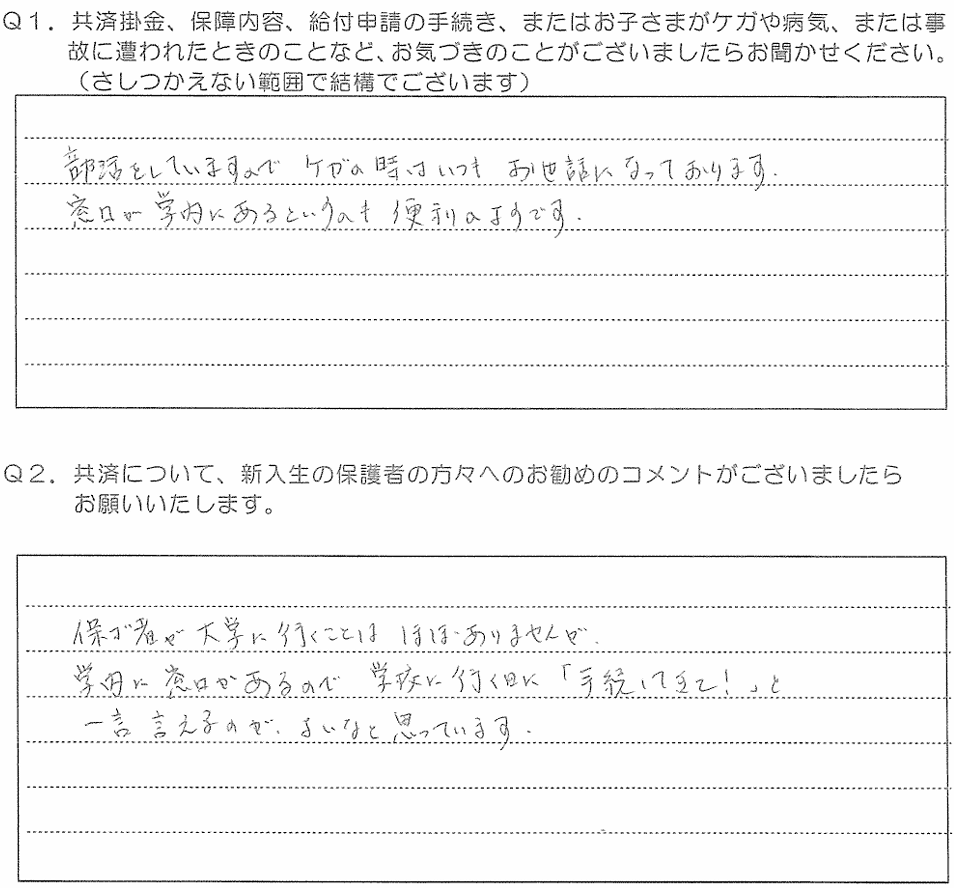 Q1．共済掛金、保障内容、給付申請の手続き、またはお子さまがケガや病気、または事
故に遭われたときのことなど、お気づきのことがございましたらお聞かせください。
（さしつかえない範囲で結構でございます）
部活をしていますので ケガの時はいつも お世話になっております.
窓口が学内にあるというのも 便利のようです.
Q2．共済について、新入生の保護者の方々へのお勧めのコメントがございましたら
お願いいたします。
保ゴ者が大学に行くことは ほぼありませんが.
学内に窓口があるので 学校に行く日に「手続してきて！」と
一言 言えるのが、よいなと思っています.